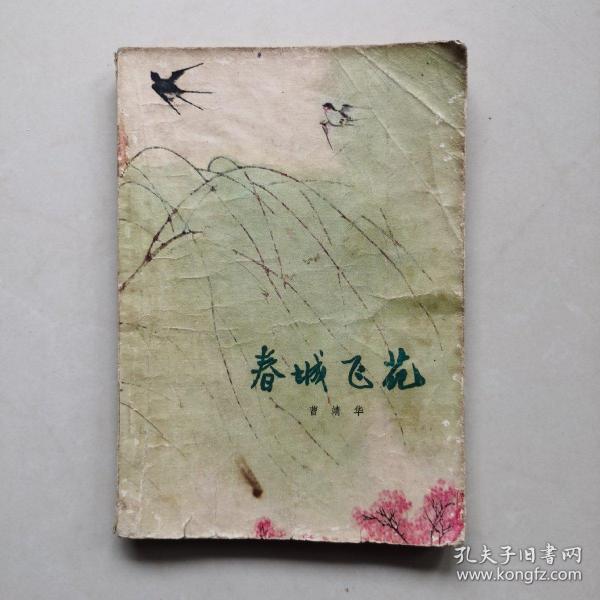 春城飞花
曹靖华
孔夫子旧書网
www.kongfz.com